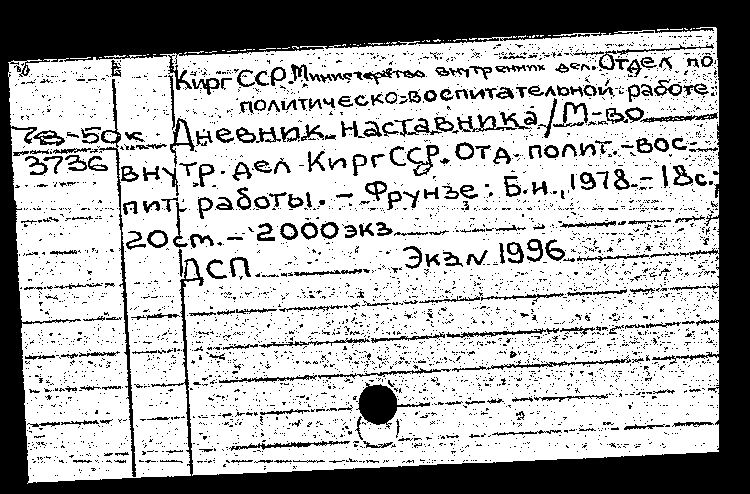 КиргССР. Министерство внутренних дел. Отдел по
политическо-воспитательной работе.
78-50к Дневник наставника/М-во
3736 внутр. дел КиргССР. Отд. полит.-вос-
пит. работы. - Фрунзе: Б.н., 1978. - 18с.;
20ст. - 2000экз.
ДСП Экз.N 1996